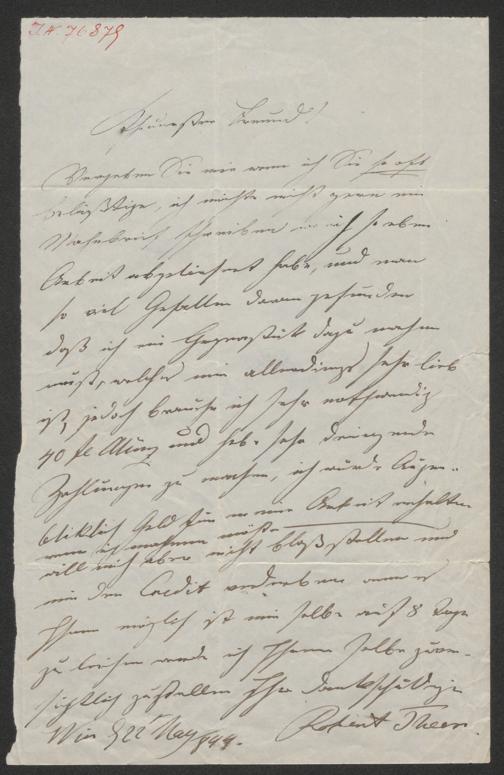 I.N. 76879
Theuerster Freund!
Vergeben Sie mir wenn ich Sie so oft
belästige, ich möchte nicht gern
schreiben ich so eben
Arbeit abgeliefert habe, und man
so viel Gefallen daran gefunden
daß ich ein Gegenstück dazu machen
muß, welches mir allerdings sehr lieb
ist, jedoch brauche ich sehr nothwendig
40 fl Münz und habe sehr dringende
Zahlungen zu machen, ich würde Augen-
bliklich Geld für meine Arbeit erhalten
wenn ich
will mich aber nicht bloßstellen und
mir den Credit verderben wenn es
Ihnen möglich ist mir selbe auf 8 Tage
zu leihen werde ich Ihnen selbe zuver-
sichtlich zustellen Ihr dankschuldiger
Wien d 22 May 844. Robert Theer.